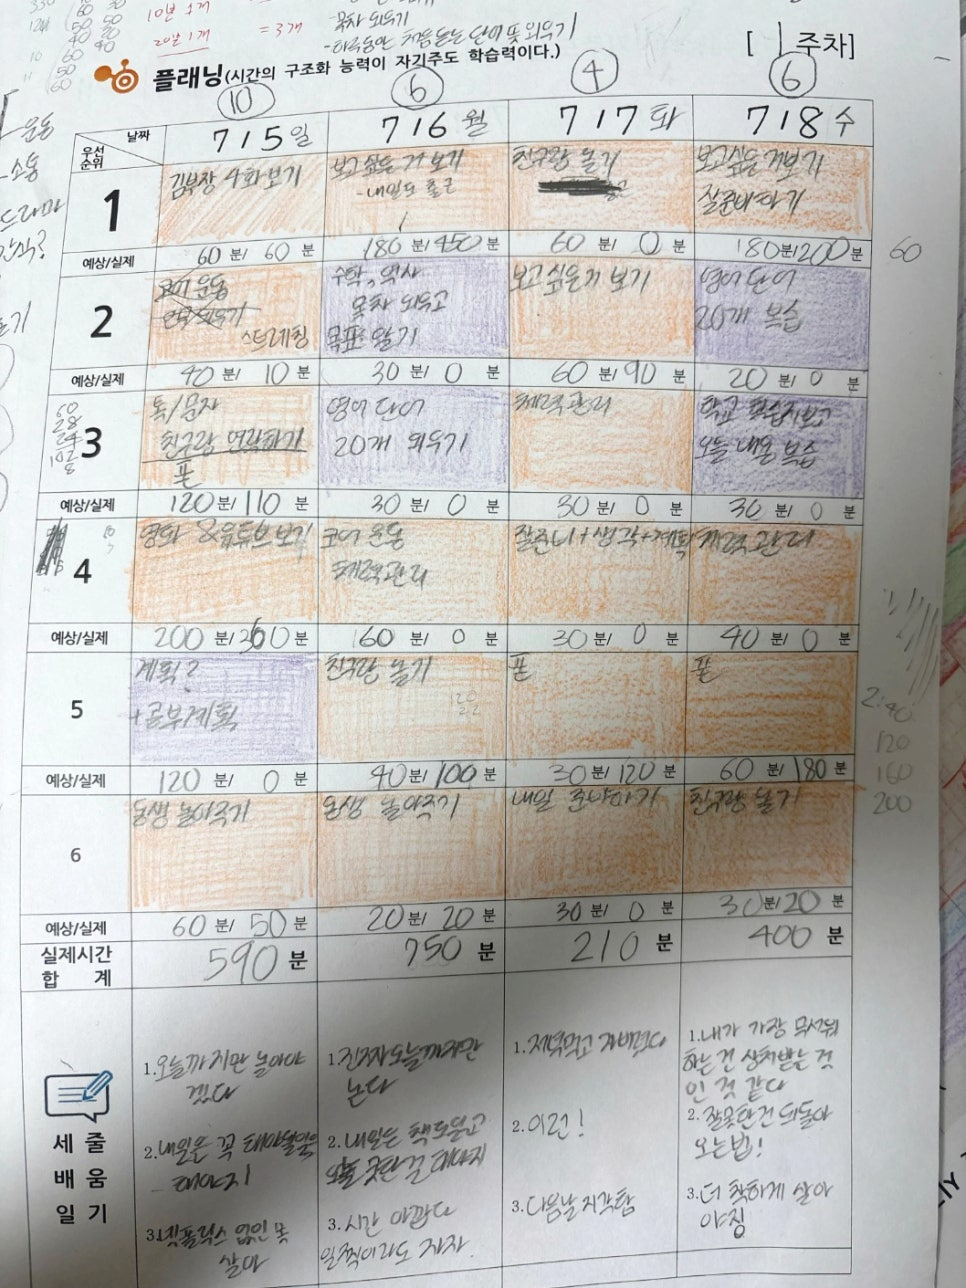 330
50
50
10분 1개
20분 1개
= 3개
목차 외우기
-하루동안 처음 듣는 단어 뜻 외우기
[ 1 주차]
플래닝(시간의 구조화 능력이 자기주도 학습력이다.)
10 6 4 6
운동
소통
드라마
간식?
날짜
우선
순위
7/5일 7/6월 7/7화 7/8수
1
김부장 4화보기
보고싶은 거 보기
-내일도 출근
친구랑 놀기
보고싶은거보기
잘준비하기
예상/실제 60분/60분 180분/450분 60분/0분 180분/200분
60
2
코어 운동
스트레칭
수학, 역사
목차 외우고
목표 알기
보고싶은거 보기
영어 단어
20개 복습
예상/실제 40분/10분 30분/0분 60분/90분 20분/0분
60
28
24
102
8
3
톡/문자
친구랑 연락하기
폰
영어 단어
20개 외우기
체력관리
학교 학습지보고
오늘 내용 복습
예상/실제 120분/110분 30분/0분 30분/0분 30분/0분
4
영화 & 유튜브 보기
코어 운동
체력관리
잘준비+생각+계획
체력관리
예상/실제 200분/360분 160분/0분 30분/0분 40분/0분
5
계획?
+공부계획
친구랑 놀기
폰
폰
2:40
120
160
200
예상/실제 120분/0분 40분/100분 30분/120분 60분/180분
6
동생 놀아주기
동생 놀아주기
내일 준비하기
친구랑 놀기
예상/실제 60분/50분 20분/20분 30분/0분 30분/20분
실제시간
합 계
590분 750분 210분 400분
세 줄
배 움
일 기
1.오늘까지만 놀아야
겠다
2.내일은 꼭 해야할일을
해야지
3.넷플릭스 없인 못
살아
1.진짜오늘까지만
논다
2.내일은 책도읽고
오늘 못한걸 해야지
3.시간 아깝다
일찍이라도 자자.
1.저녁먹고 자버렸다
2.이런!
3.다음날 지각함
1.내가 가장 무서워
하는건 상처받는 것
인 것 같다
2.잘못한건 되돌아
오는법!
3.더 착하게 살아
야징